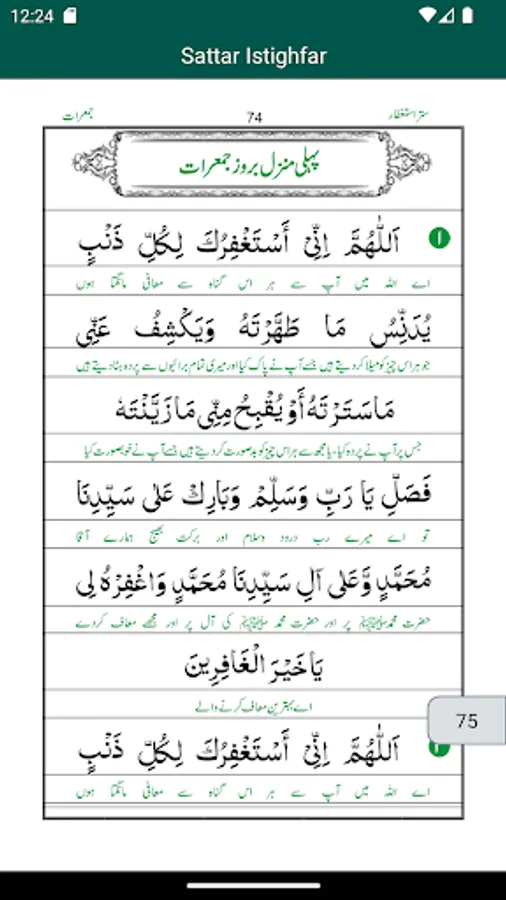 12:24
Sattar Istighfar
ستر استغفار 74 جمعرات
پہلی منزل بروز جمعرات
۱ اَللّٰهُمَّ اِنِّیْ أَسْتَغْفِرُكَ لِكُلِّ ذَنْبٍ
اے اللہ میں آپ سے ہر اس گناہ سے معافی مانگتا ہوں
يُدَنِّسُ مَا طَهَّرْتَهُ وَيَكْشِفُ عَنِّي
جو ہر اس چیز کو میلا کر دیتے ہیں جسے آپ نے پاک کیا اور میری تمام برائیوں سے پردہ ہٹا دیتے ہیں
مَا سَتَرْتَهُ أَوْ يُقْبِحُ مِنِّي مَا زَيَّنْتَهُ
جس پر آپ نے پردہ کیا، یا مجھ سے ہر اس چیز کو بدصورت کر دیتے ہیں جسے آپ نے خوبصورت کیا
فَصَلِّ يَا رَبِّ وَسَلِّمْ وَبَارِكْ عَلٰى سَيِّدِنَا
تو اے میرے رب درود وسلام اور برکت بھیج ہمارے آقا
مُحَمَّدٍ وَّعَلٰى آلِ سَيِّدِنَا مُحَمَّدٍ وَاغْفِرْهُ لِی
حضرت محمد ﷺ پر اور حضرت محمد ﷺ کی آل پر اور مجھے معاف کردے
يَا خَيْرَ الْغَافِرِينَ
اے بہترین معاف کرنے والے
75
اَللّٰهُمَّ اِنِّیْ أَسْتَغْفِرُكَ لِكُلِّ ذَنْبٍ
اے اللہ میں آپ سے ہر اس گناہ سے معافی مانگتا ہوں